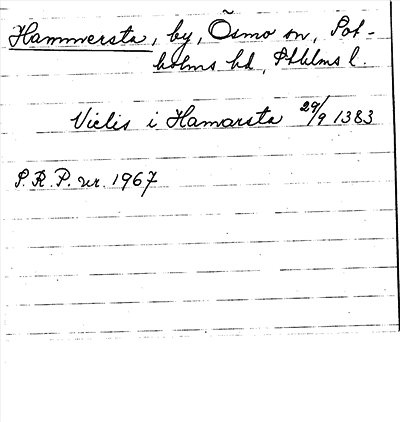 Hammersta, by, Ösmo sn, Sot-
holms hd, Sthlms l.
Vielis i Hamarsta 29/9 1383
S.R.P. nr. 1967